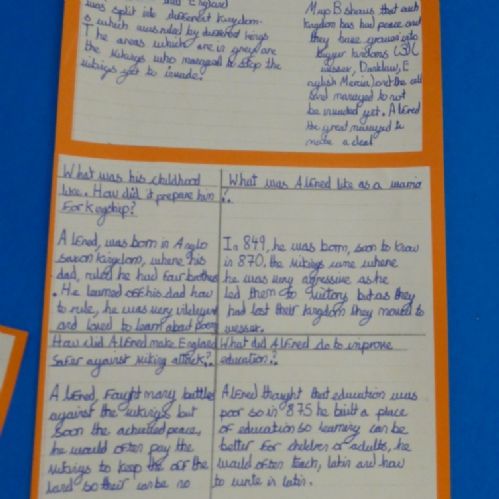 was split into different kingdom-
s which was ruled by different kings
The areas which are in grey are
the vikings who managed to stop the
vikings yet to invade.
Map B shows that each
kingdom has had peace and
they have groups into
bigger kingdoms (3)(
wessex, Danelaw, E
nglish Mercia) and the celt
land managed to not
be invaded yet. Alfred
the great managed to
make a deal
What was his childhood
like. How did it prepare him
For Kingship?
What was Alfred like as a
?.
Alfred, was born in Anglo
saxon kingdom, where his
dad, ruled he had four brothers
. He learned off his dad how
to rule, he was very
and loved to learn about poem
In 849, he was born, soon to know
in 870, the vikings came where
he was very agressive as he
led them to victory but as they
had lost their kingdom they moved to
wessex.
How did Alfred make England
Safer against viking attack?.
What did Alfred do to improve
education.?
Alfred, fought many battles
against the vikings but
soon the achieved peace,
he would often pay the
vikings to keep the off the
land so their can be no
Alfred thought that education was
poor so in 875 he built a place
of education so learning can be
better for children or adults, he
would often teach, latin and how
to write in latin.